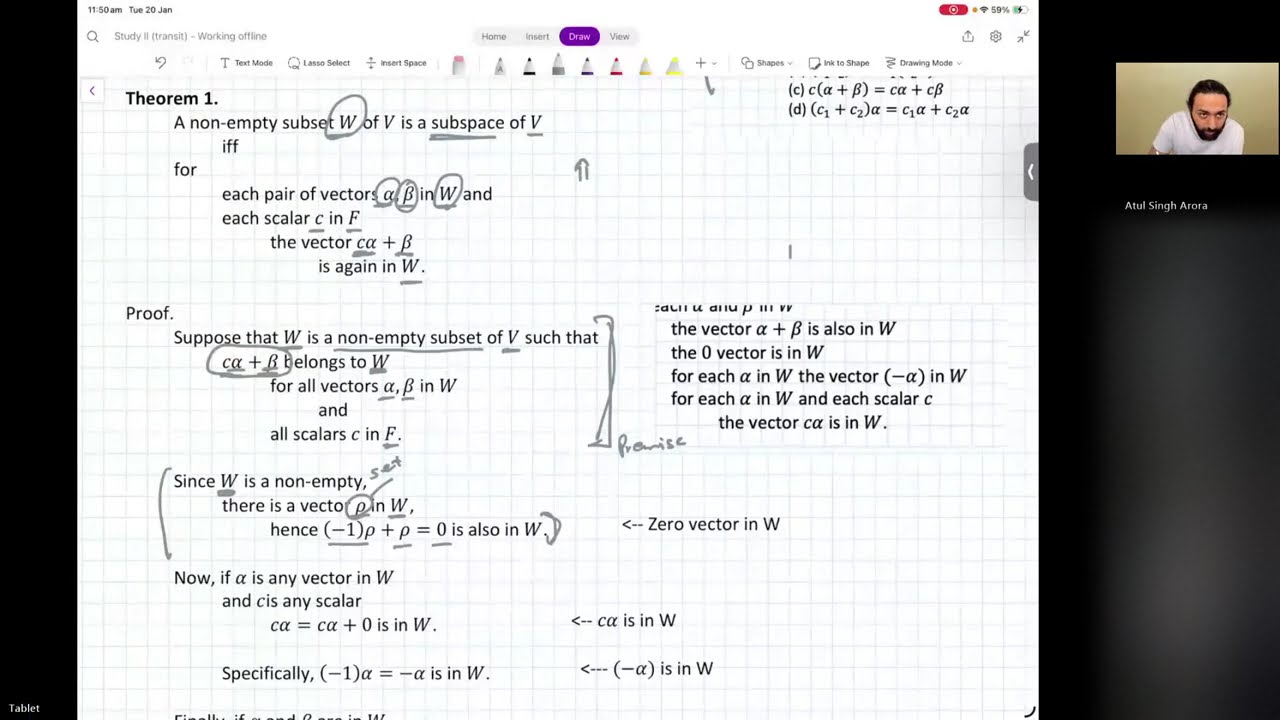 11:50am Tue 20 Jan
59%
Study II (transit) – Working offline
Home Insert Draw View
Text Mode Lasso Select Insert Space Shapes Ink to Shape Drawing Mode
(c) c(α + β) = cα + cβ
(d) (c₁ + c₂)α = c₁α + c₂α
Theorem 1.
A non-empty subset W of V is a subspace of V
iff
for
each pair of vectors α, β in W and
each scalar c in F
the vector cα + β
is again in W.
Proof.
Suppose that W is a non-empty subset of V such that
cα + β belongs to W
for all vectors α, β in W
and
all scalars c in F.
Premise
each α and β in W
the vector α + β is also in W
the 0 vector is in W
for each α in W the vector (−α) in W
for each α in W and each scalar c
the vector cα is in W.
set
Since W is a non-empty,
there is a vector ρ in W,
hence (−1)ρ + ρ = 0 is also in W.
<-- Zero vector in W
Now, if α is any vector in W
and cis any scalar
cα = cα + 0 is in W.
<-- cα is in W
Specifically, (−1)α = −α is in W.
<--- (−α) is in W
Finally, if α and β are in W
Atul Singh Arora
Tablet